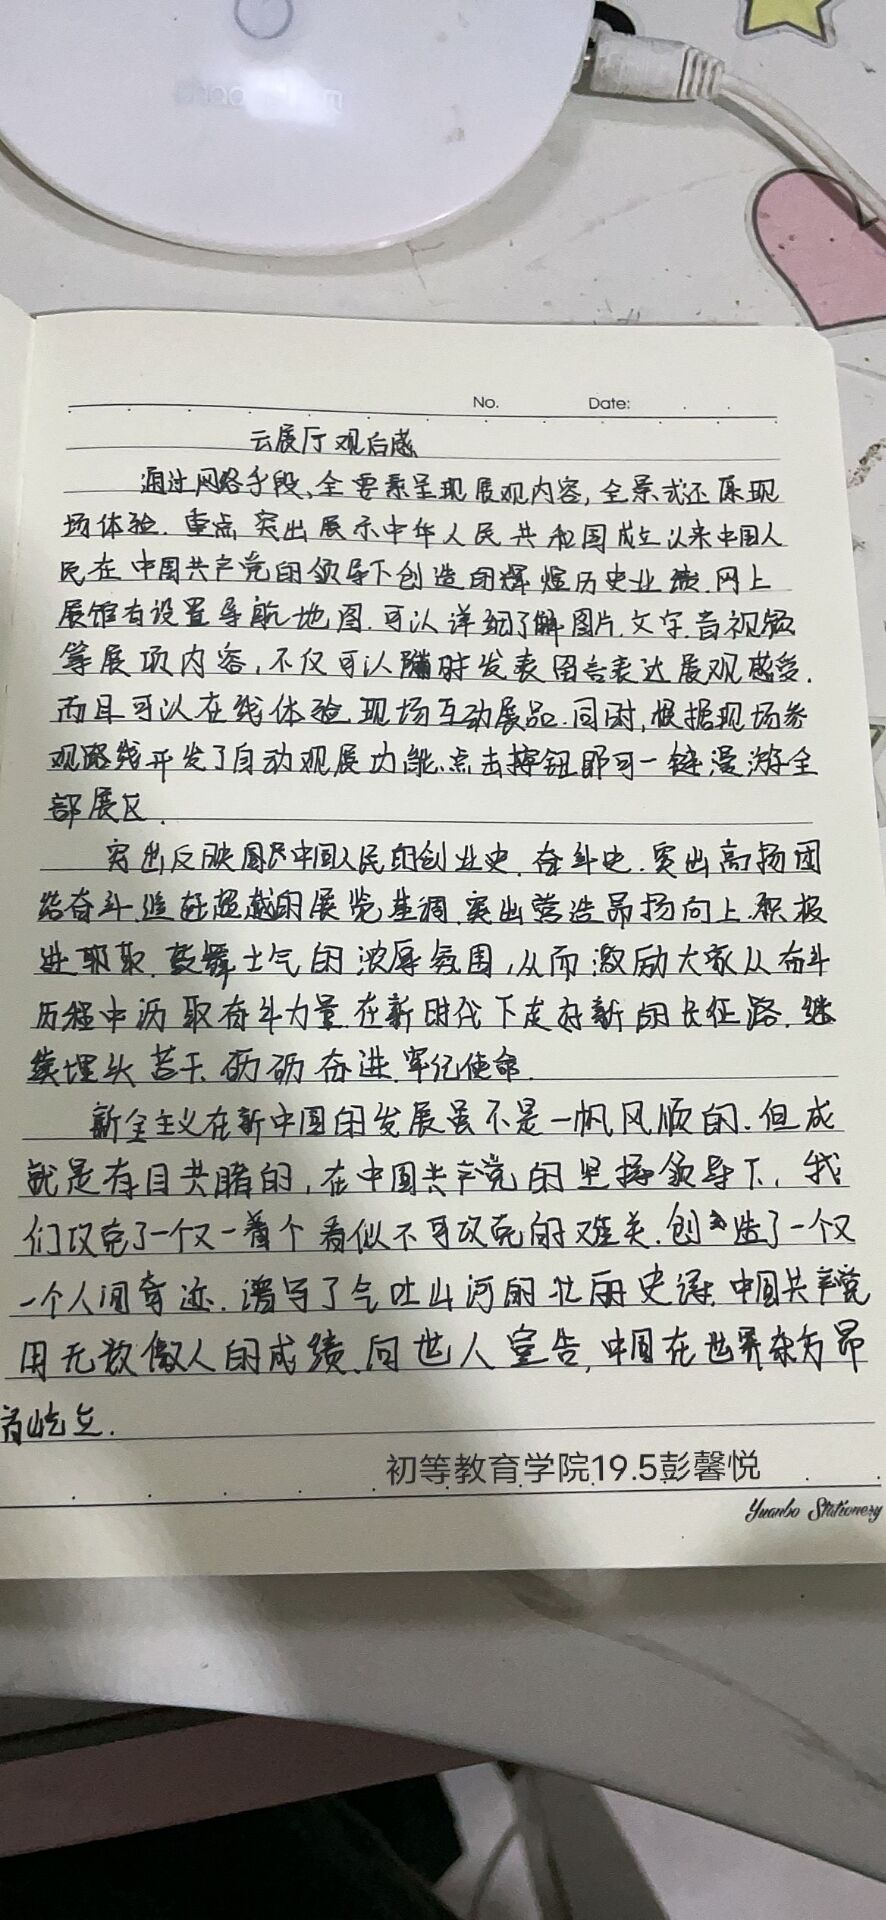 No. Date:
云展厅观后感
通过网络手段、全要素呈现展观内容,全景式还原现
场体验.重点突出展示中华人民共和国成立以来中国人
民在中国共产党的领导下创造的辉煌历史业绩.网上
展馆有设置导航地图.可以详细了解图片.文字.音视频
等展项内容,不仅可以随时发表留言表达展观感受.
而且可以在线体验现场互动展品.同时,根据现场参
观路线开发了自动观展功能.点击按钮即可一键漫游全
部展区.
突出反映中国人民的创业史.奋斗史.突出高扬团
结奋斗.追赶超越的展览基调.突出营造昂扬向上.积极
进取.鼓舞士气的浓厚氛围,从而激励大家从奋斗
历程中汲取奋斗力量.在新时代下走好新的长征路.继
续埋头苦干.砺砺奋进.牢记使命.
主义在新中国的发展虽不是一帆风顺的.但成
就是有目共睹的,在中国共产党的坚强领导下,我
们攻克了一个又一个看似不可攻克的难关.创造了一个又
一个人间奇迹.谱写了气吐山河的壮丽史诗.中国共产党
用无数傲人的成绩.向世人宣告,中国在世界东方昂
首屹立.
初等教育学院19.5彭馨悦
Yuanbo Stationery